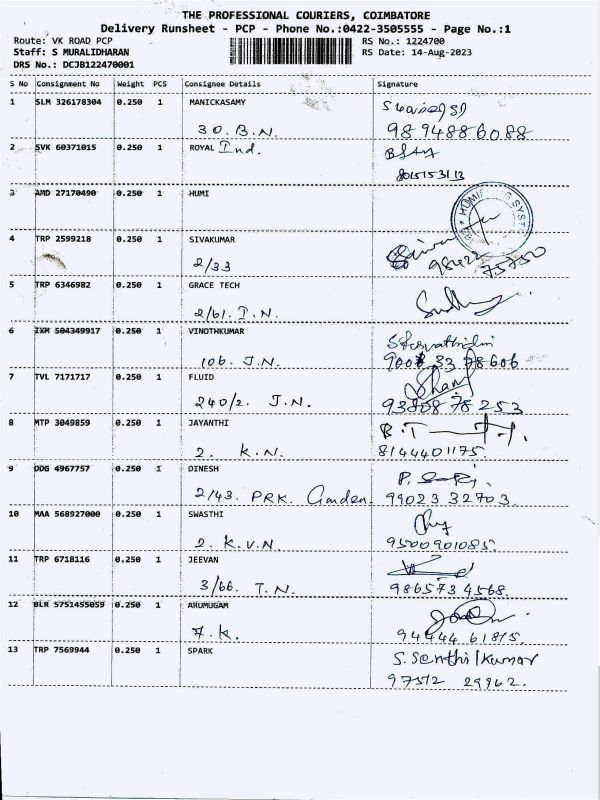 THE PROFESSIONAL COURIERS, COIMBATORE
Delivery Runsheet - PCP - Phone No.:0422-3505555 - Page No.:1
Route: VK ROAD PCP RS No.: 1224700
Staff: S MURALIDHARAN RS Date: 14-Aug-2023
DRS No.: DCJB122470001
S No Consignment No Weight PCS Consignee Details Signature
1 SLM 326178304 0.250 1 MANICKASAMY
30. B.N. 9894886088
2 SVK 60371015 0.250 1 ROYAL Ind.
8015153113
3 AMD 27170490 0.250 1 HUMI
4 TRP 2599218 0.250 1 SIVAKUMAR
2/33 98422 75750
5 TRP 6346982 0.250 1 GRACE TECH
2/61. I.N.
6 IXM 504349917 0.250 1 VINOTHKUMAR
106. J.N.
7 TVL 7171717 0.250 1 FLUID
240/2. J.N. 93808 78 253
8 MTP 3049859 0.250 1 JAYANTHI
2. K.N. 8144401175.
9 DDG 4967757 0.250 1 DINESH
2/43. PRK. Garden. 99023 32703.
10 MAA 568927000 0.250 1 SWASTHI
2. K.V.N. 9500901085.
11 TRP 6718116 0.250 1 JEEVAN
3/66. T.N. 986573 4568.
12 BLR 5751455059 0.250 1 ARUMUGAM
7.K. 94444 61815.
13 TRP 7569944 0.250 1 SPARK S. Senthilkumar
97512 29962.